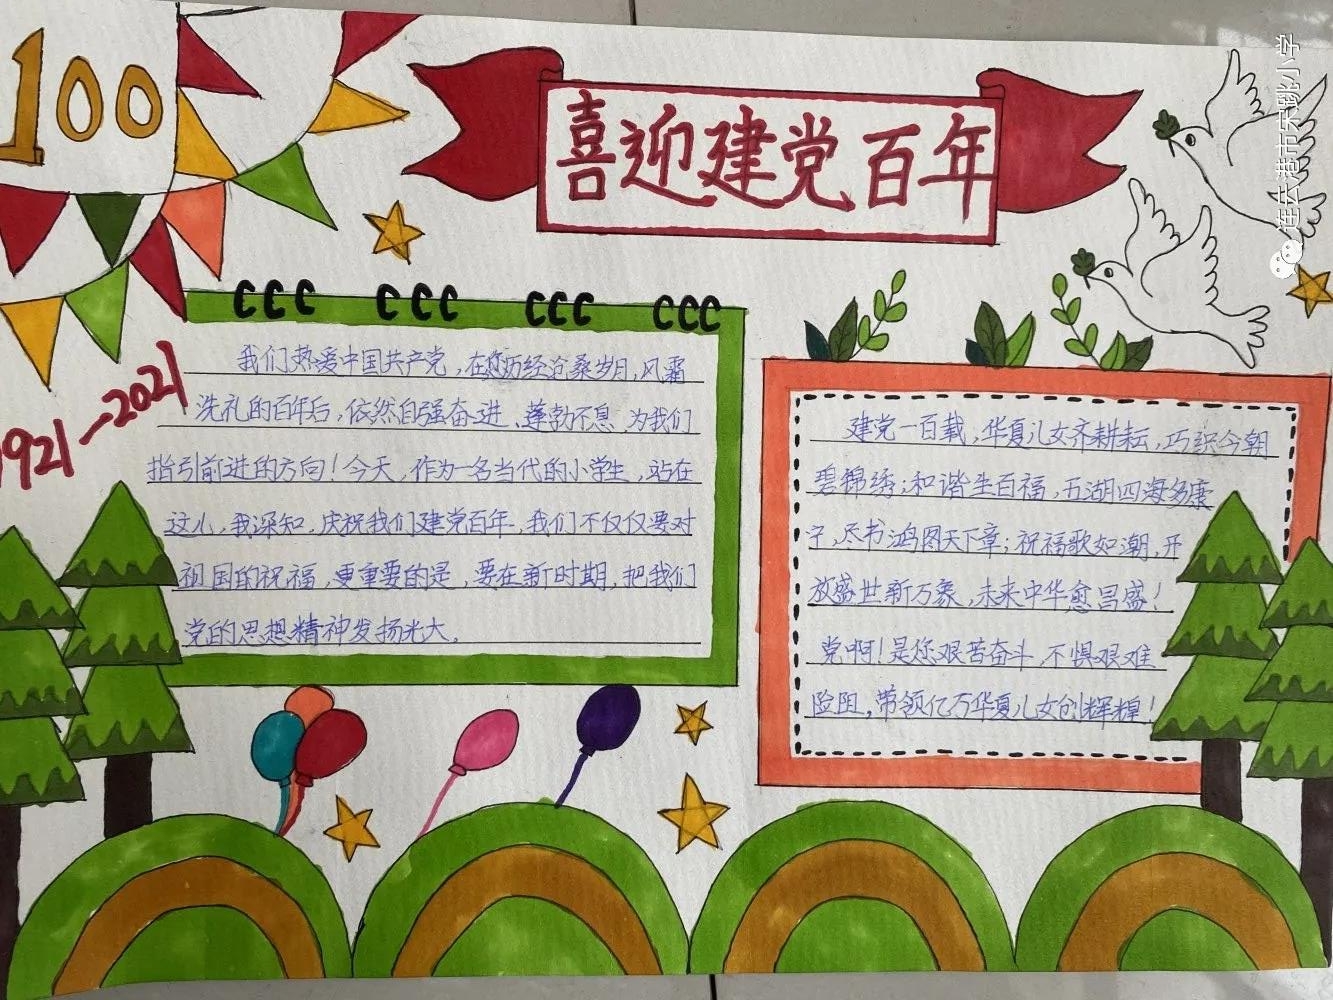 100
喜迎建党百年
1921-2021
我们热爱中国共产党，在您历经沧桑岁月，风霜
洗礼的百年后，依然自强奋进、蓬勃不息，为我们
指引前进的方向！今天，作为一名当代的小学生，站在
这儿，我深知，庆祝我们建党百年，我们不仅仅要对
祖国的祝福，更重要的是，要在新时期，把我们
党的思想精神发扬光大。
建党一百载，华夏儿女齐耕耘，巧织今朝
碧锦绣；和谐生百福，五湖四海多康
宁，尽书鸿图天下章；祝福歌如潮，开
放盛世新万象，未来中华愈昌盛！
党啊！是您艰苦奋斗，不惧艰难
险阻，带领亿万华夏儿女创辉煌！
连云港市宋跳小学